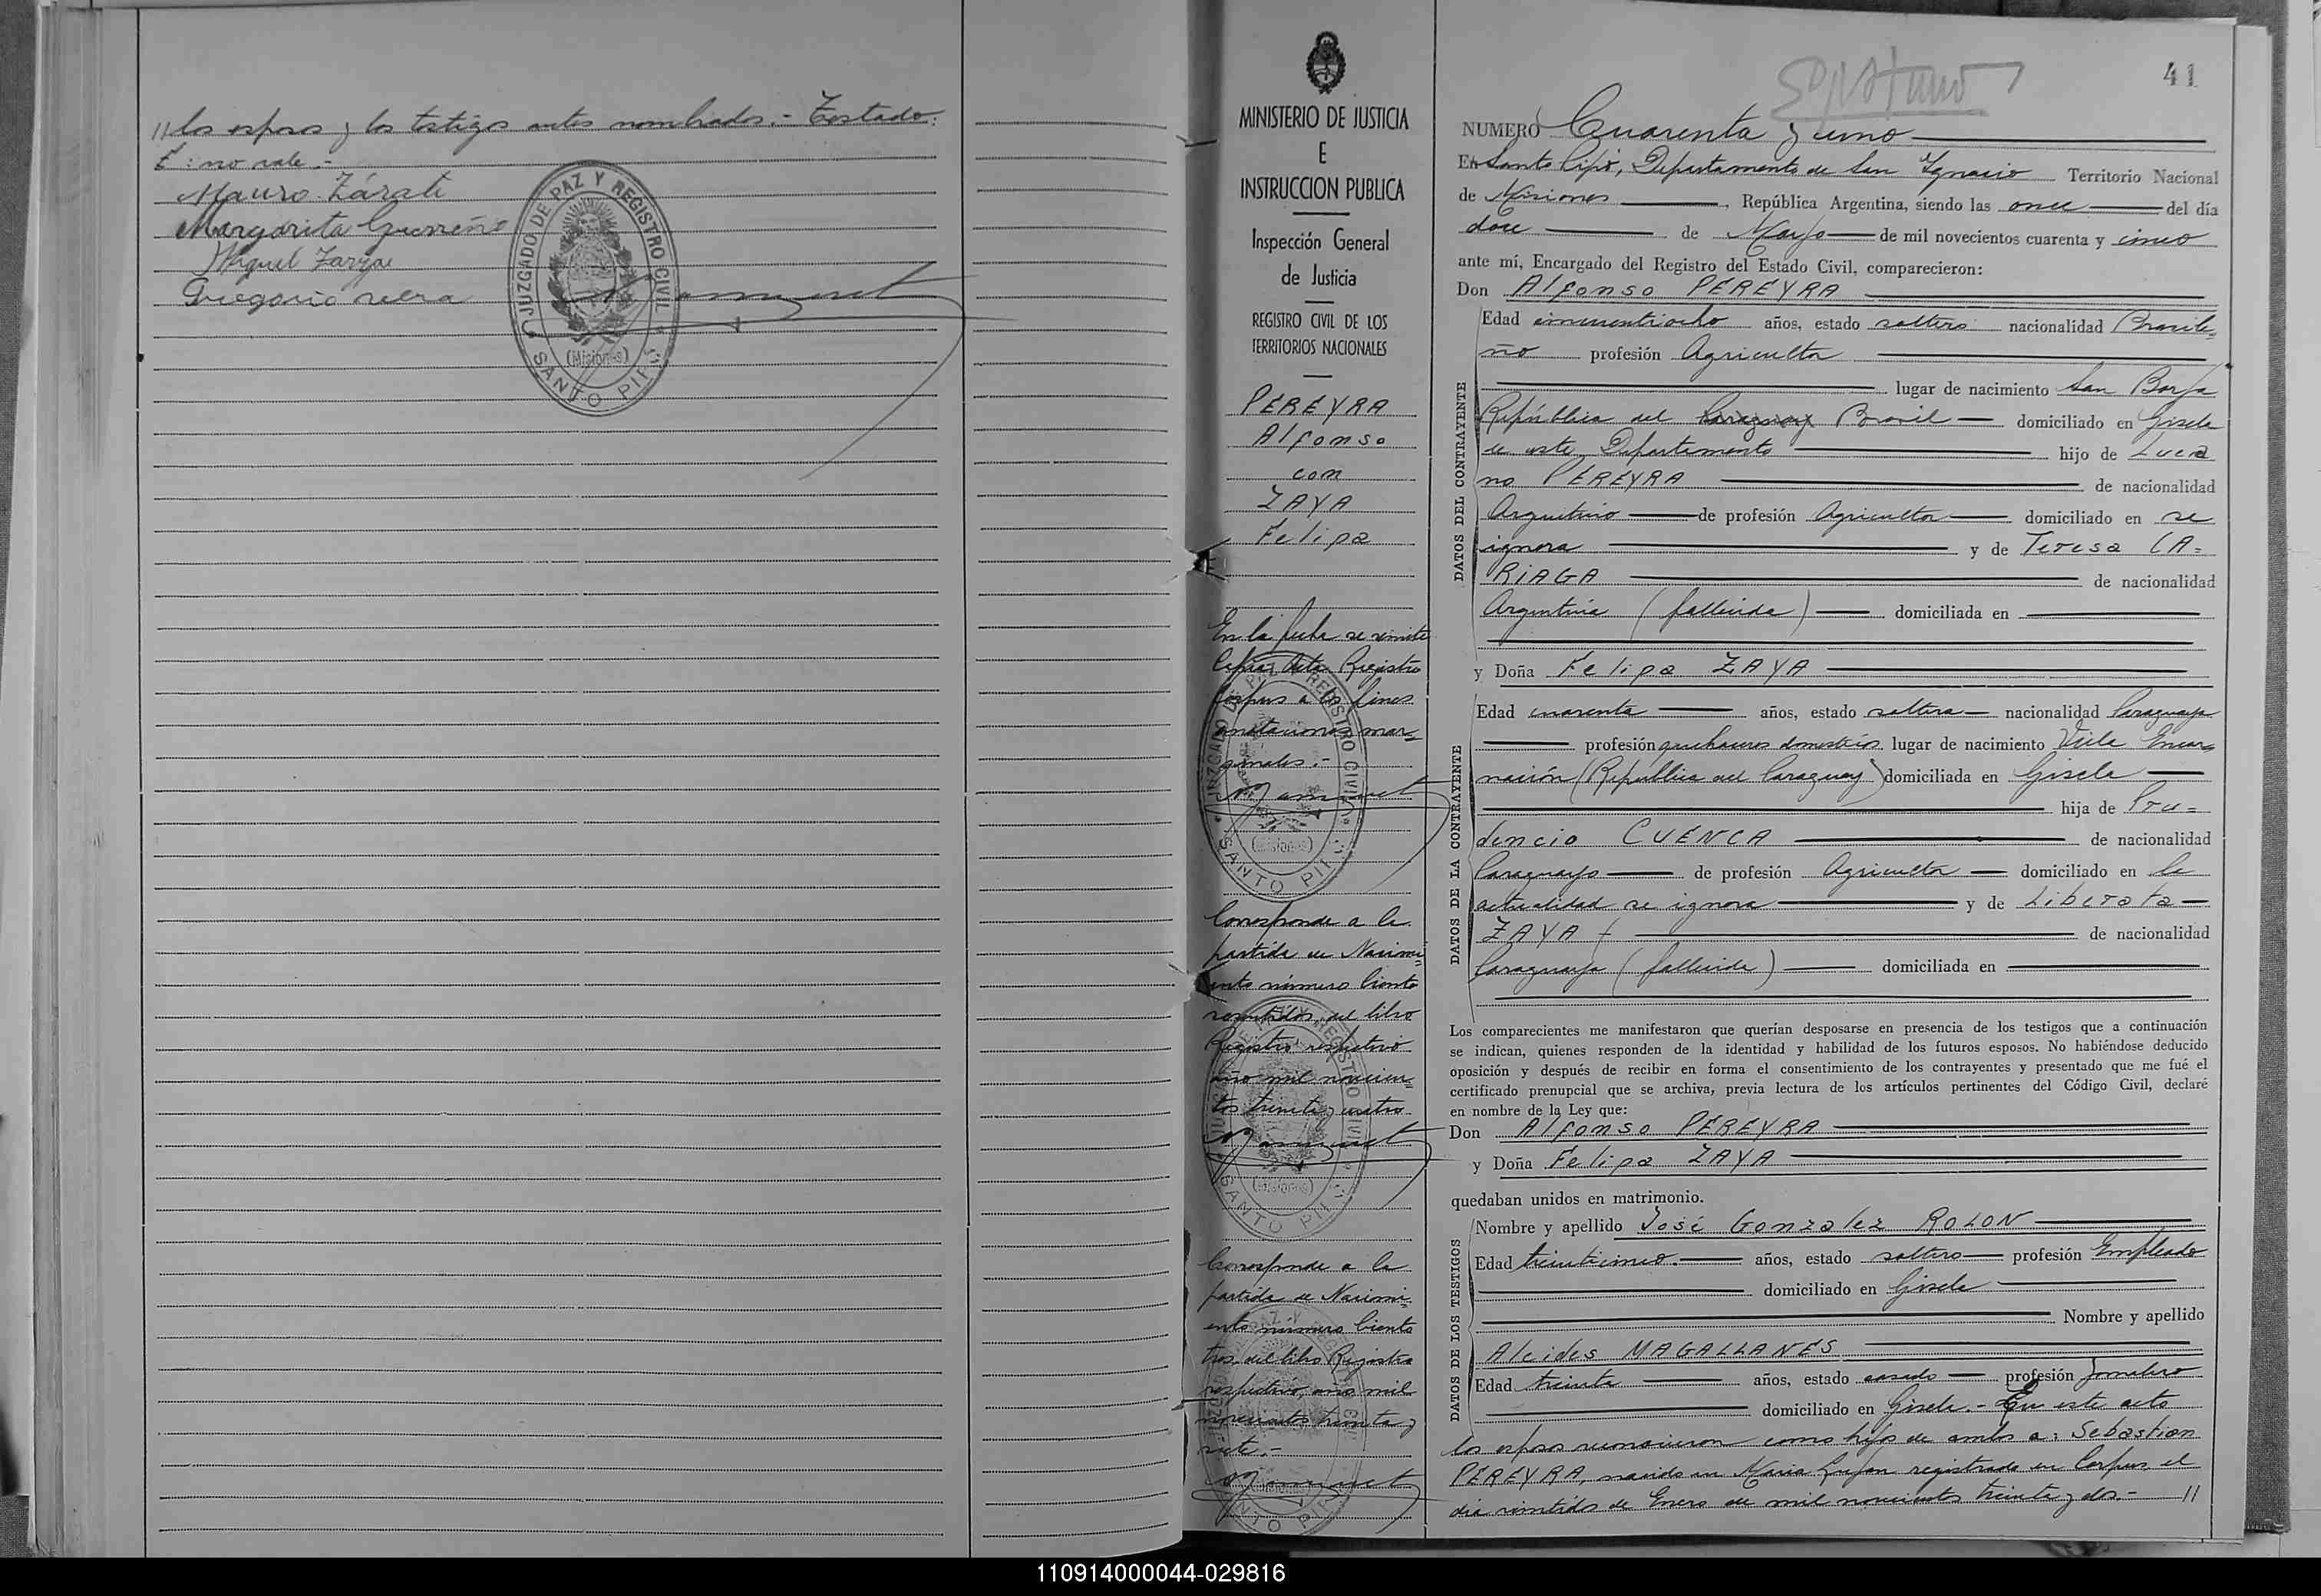 //los esposos y los testigos antes nombrados.- Testado:
E: no vale.-
Mauro Zárate
Margarita Guerreño
Miguel Zarza
Gregorio
JUZGADO DE PAZ Y REGISTRO CIVIL
(Misiones)
SANTO PIPÓ
MINISTERIO DE JUSTICIA
E
INSTRUCCION PUBLICA
Inspección General
de Justicia
REGISTRO CIVIL DE LOS
TERRITORIOS NACIONALES
PEREYRA
Alfonso
con
ZAYA
Felipa
En la fecha se remite
Copia Acta Registro
Corpus a los fines
anotaciones mar-
ginales.-
Corresponde a la
partida de Nacimi-
ento número Ciento
veintidos, del libro
Registro respectivo
año mil novecien-
tos treinta y cuatro
Corresponde a la
partida de Nacimi-
ento número Ciento
tres, del libro Registro
respectivo, año mil
novecientos treinta y
siete.-
41
NUMERO Cuarenta y uno
En Santo Pipó, Departamento de San Ignacio Territorio Nacional
de Misiones, República Argentina, siendo las once del día
doce de Mayo de mil novecientos cuarenta y cinco
ante mí, Encargado del Registro del Estado Civil, comparecieron:
Don Alfonso PEREYRA
DATOS DEL CONTRAYENTE
Edad cincuentiocho años, estado soltero nacionalidad Brasile-
ño profesión Agricultor
lugar de nacimiento San Borja
República del Paraguay Brasil domiciliado en Gisela
de este Departamento hijo de Lucia
no PEREYRA de nacionalidad
Argentino de profesión Agricultor domiciliado en se
ignora y de Teresa CA-
RIAGA de nacionalidad
Argentina (fallecida) domiciliada en
y Doña Felipa ZAYA
DATOS DE LA CONTRAYENTE
Edad cuarenta años, estado soltera nacionalidad Paraguaya
profesión quehaceres domésticos lugar de nacimiento Villa Encar-
nación (República del Paraguay) domiciliada en Gisela
hija de Pru-
dencio CUENCA de nacionalidad
Paraguayo de profesión Agricultor domiciliado en la
actualidad se ignora y de Liberata
ZAYA de nacionalidad
Paraguaya (fallecida) domiciliada en
Los comparecientes me manifestaron que querían desposarse en presencia de los testigos que a continuación
se indican, quienes responden de la identidad y habilidad de los futuros esposos. No habiéndose deducido
oposición y después de recibir en forma el consentimiento de los contrayentes y presentado que me fué el
certificado prenupcial que se archiva, previa lectura de los artículos pertinentes del Código Civil, declaré
en nombre de la Ley que:
Don Alfonso PEREYRA
y Doña Felipa ZAYA
quedaban unidos en matrimonio.
DATOS DE LOS TESTIGOS
Nombre y apellido José Gonzalez ROLON
Edad treinticinco.- años, estado soltero profesión Empleado
domiciliado en Gisela
Nombre y apellido
Alcides MAGALLANES
Edad treinta años, estado casado profesión Jornalero
domiciliado en Gisela.- En este acto
los esposos reconocieron como hijo de ambos a: Sebastian
PEREYRA, nacido en Maria Lujan registrado en Corpus, el
dia veintidos de Enero de mil novecientos treinta y dos.- //
110914000044-029816